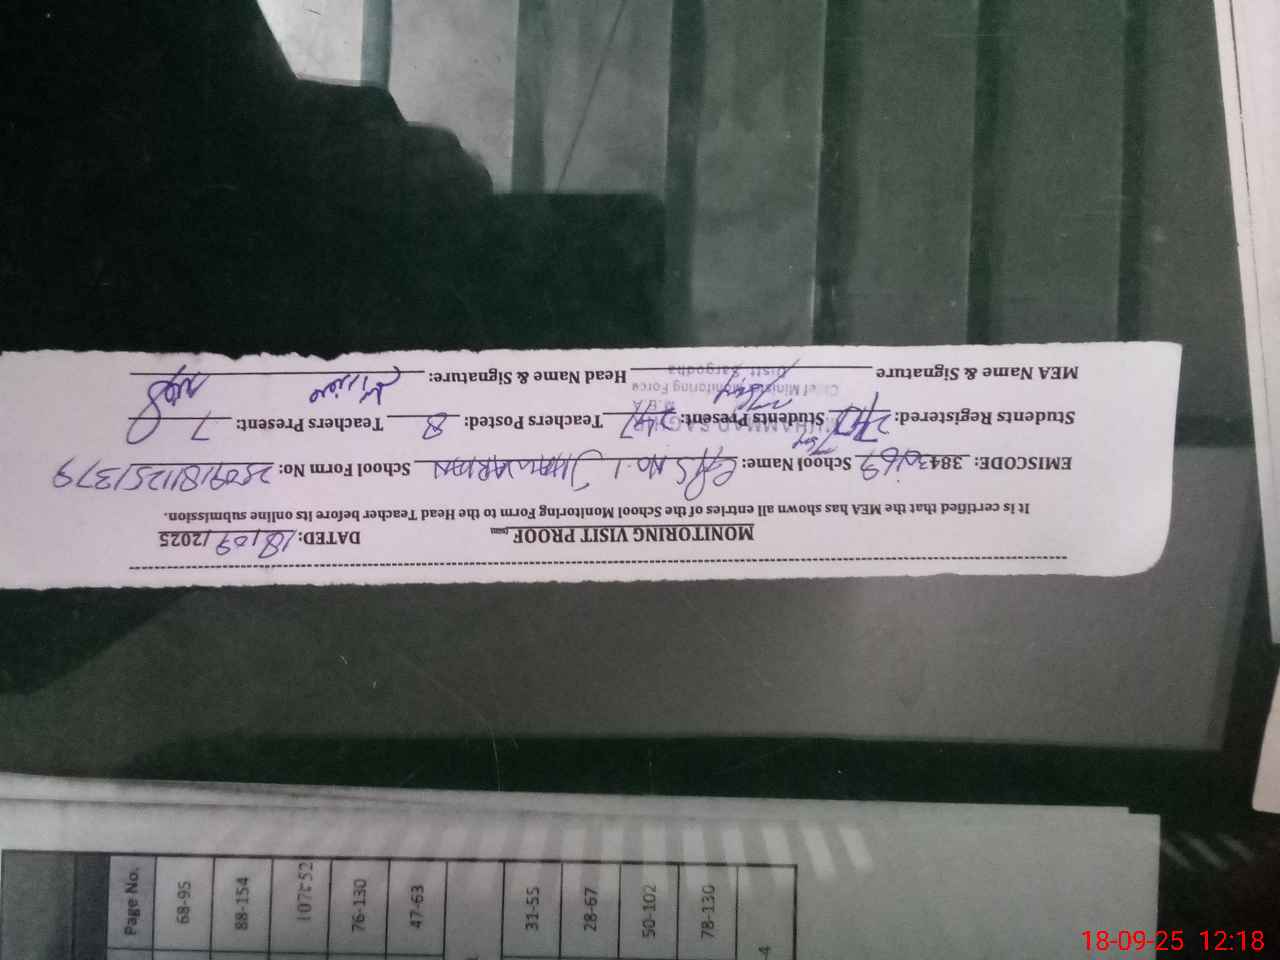 MONITORING VISIT PROOF DATED: 18/09/2025
It is certified that the MEA has shown all entries of the School Monitoring Form to the Head Teacher before its online submission.
EMISCODE: 3843 School Name: No.1 JHAWARIAN School Form No: 25091811251379
Students Registered: Students Present: 247 Teachers Posted: 8 Teachers Present: 7
M.E.A
Chief Minister Monitoring Force
Distt. Sargodha
MEA Name & Signature Head Name & Signature:
Page No.
68-95
88-154
76-130
47-63
31-55
28-67
50-102
78-130
18-09-25 12:18